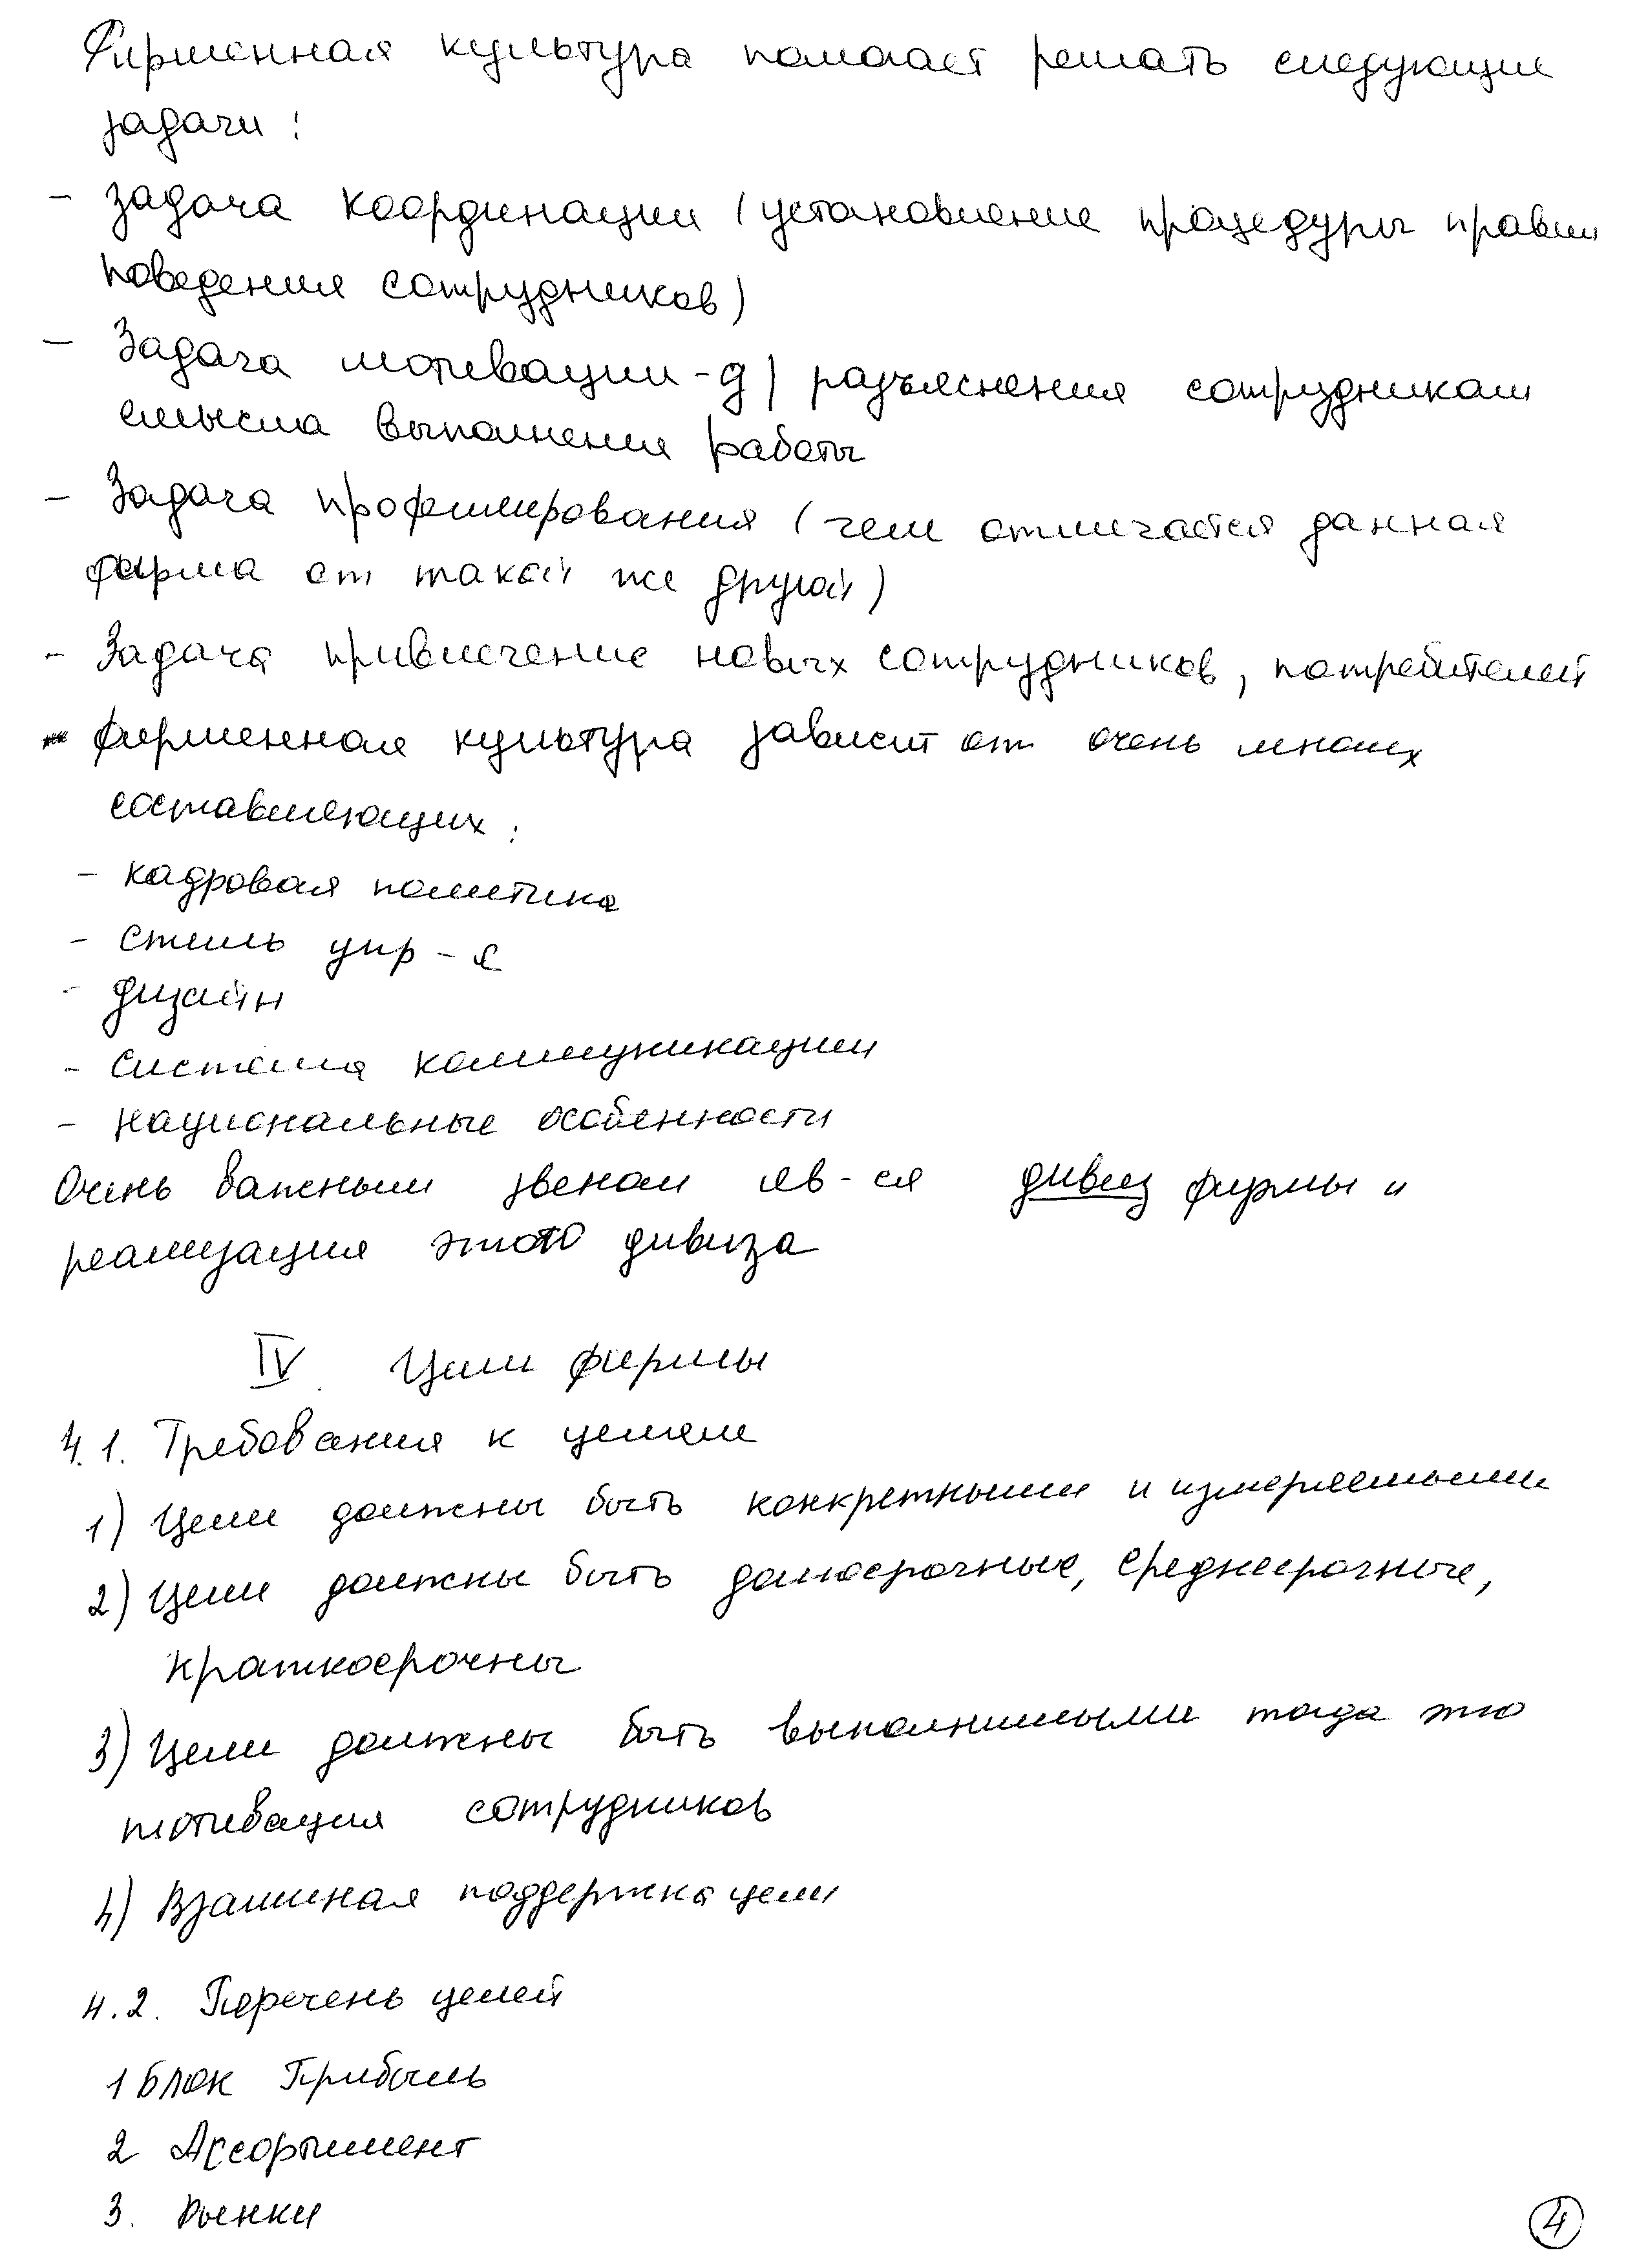 Фирменная культура помогает решать следующие
задачи:
- задача координации (установление процедуры правил
поведения сотрудников)
- Задача мотивации - д/ разъяснения сотрудникам
смысла выполнения работы
- Задача профилирования (чем отличается данная
фирма от такой же другой)
- Задача привлечение новых сотрудников, потребителей
- фирменная культура зависит от очень многих
составляющих:
- кадровая политика
- стиль упр-я
- дизайн
- система коммуникации
- национальные особенности
Очень важным звеном яв-ся девиз фирмы и
реализация этого девиза
IV. Цели фирмы
4.1. Требования к целям
1) Цели должны быть конкретными и измеряемыми
2) Цели должны быть долгосрочные, среднесрочные,
краткосрочны
3) Цели должны быть выполнимыми тогда это
мотивация сотрудников
4) Взаимная поддержка цели
4.2. Перечень целей
1 Блок Прибыль
2 Ассортимент
3. Рынки
4